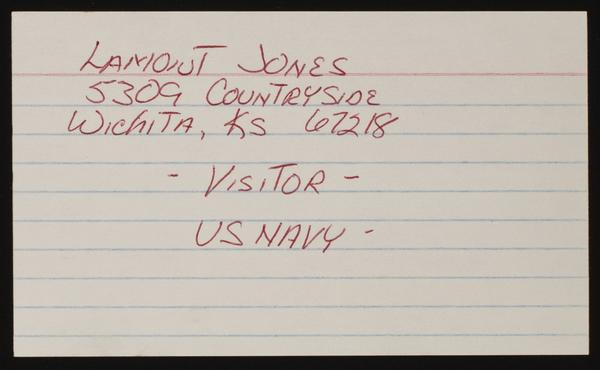 Lamont Jones
5309 Countryside
Wichita, KS 67218
- Visitor -
US Navy -